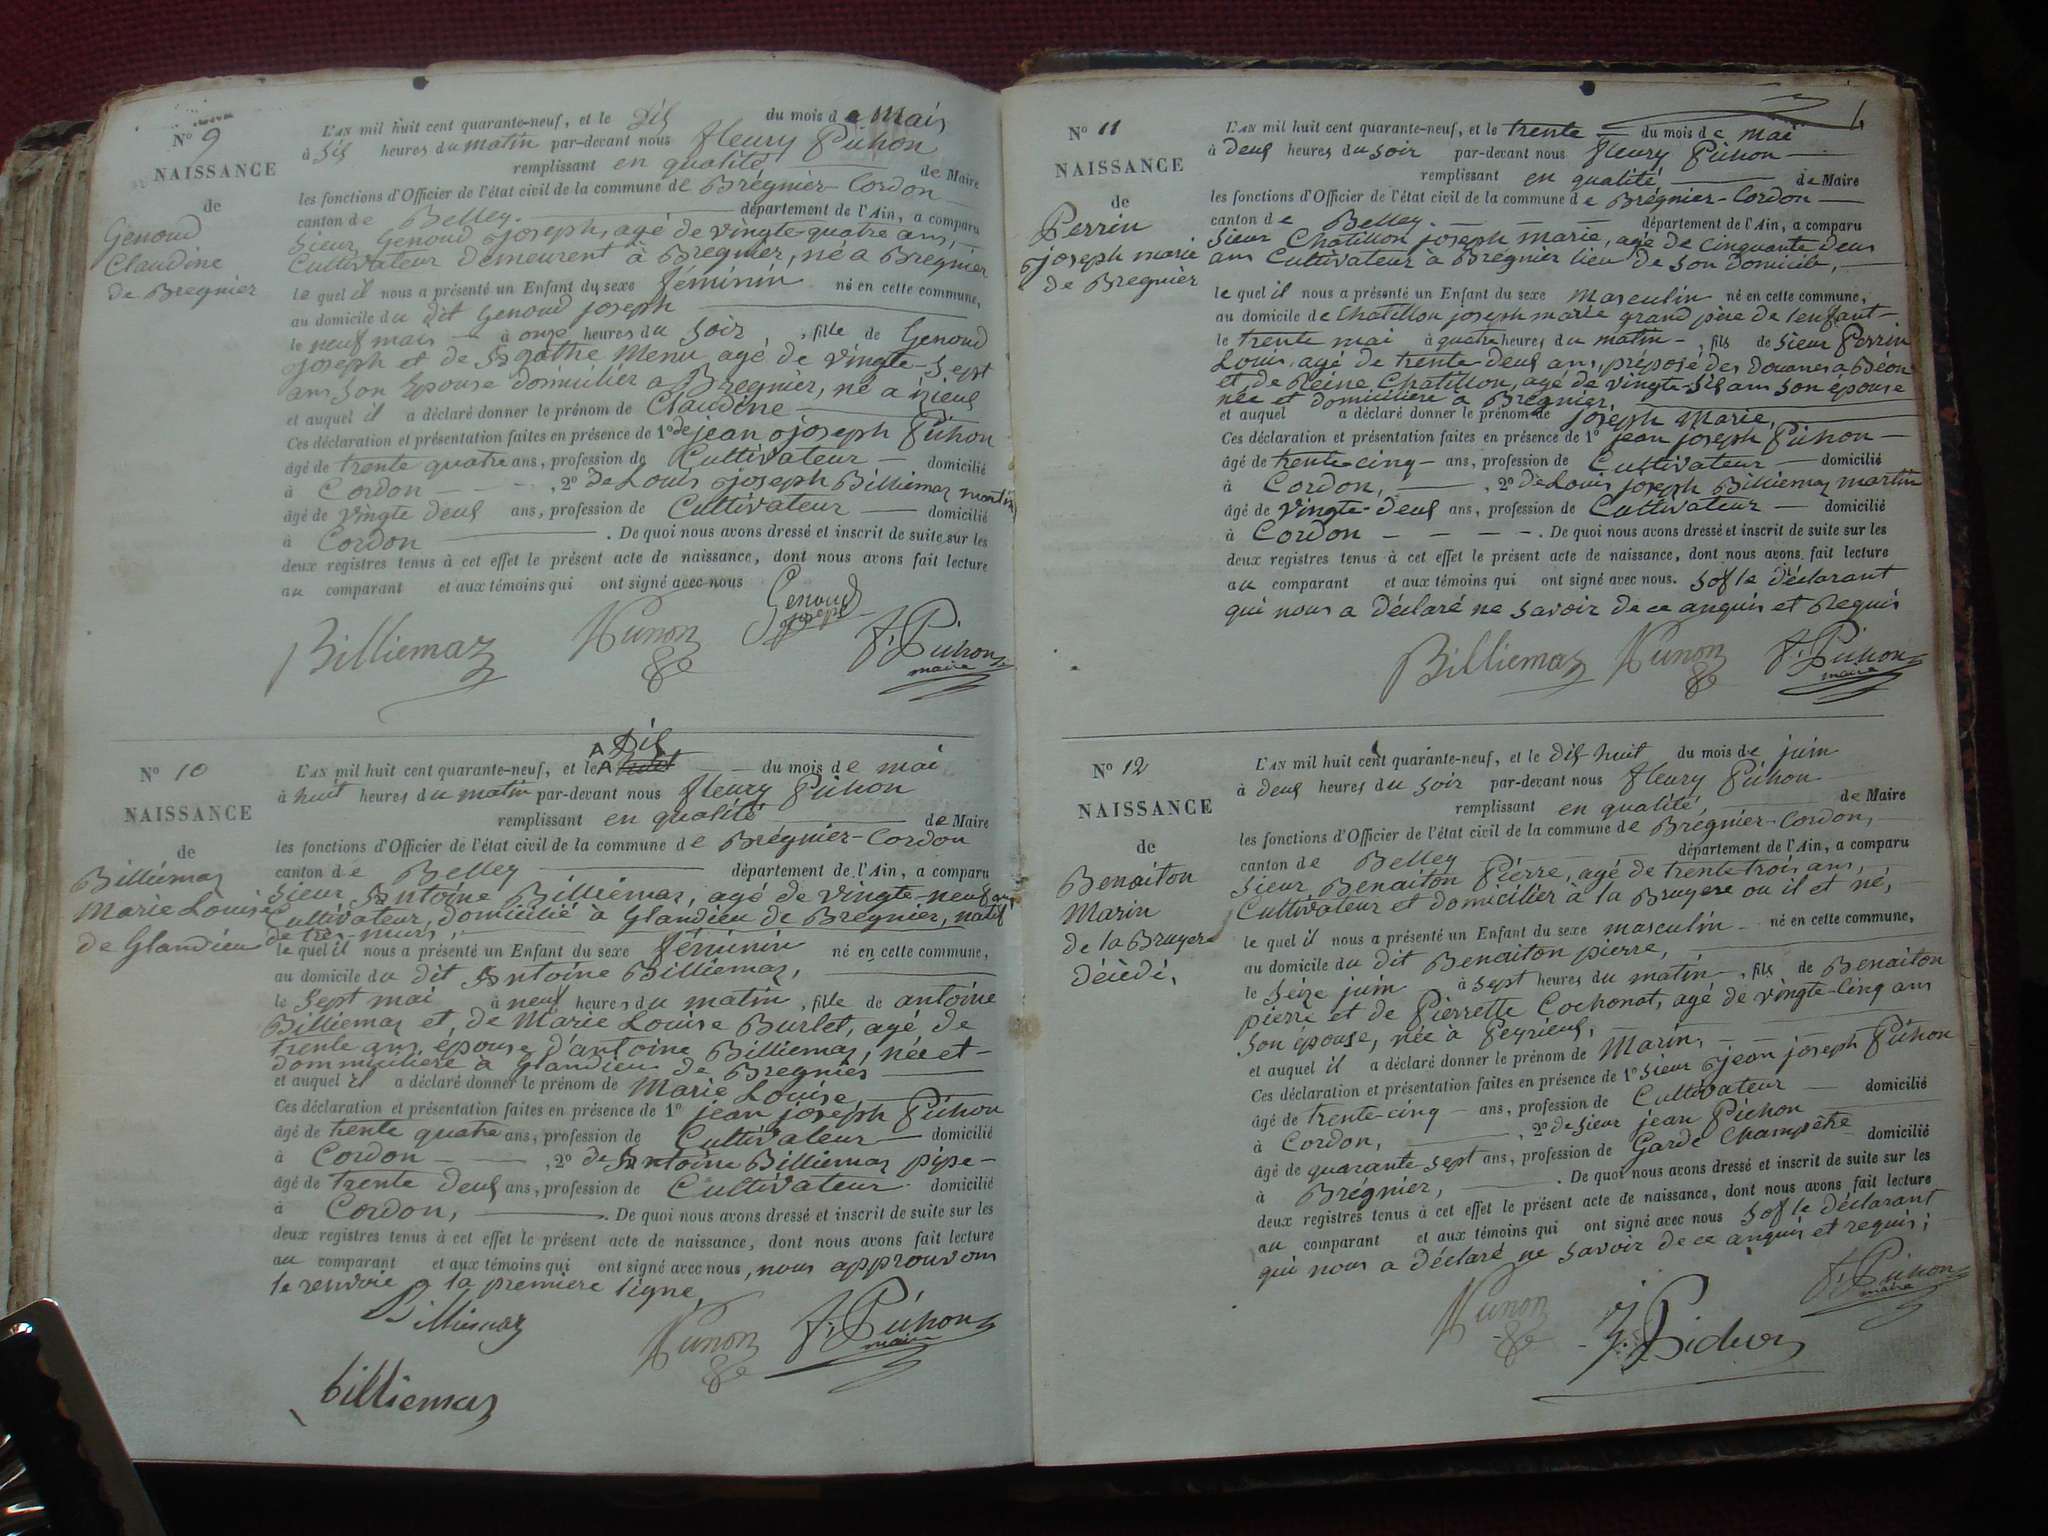 N° 9
NAISSANCE
de
Genoud
Claudine
de Bregnier
L'AN mil huit cent quarante-neuf, et le Dix du mois de Mais
à Six heures du matin par-devant nous fleury Pichon
remplissant en qualité de Maire
les fonctions d'Officier de l'état civil de la commune de Brégnier-Cordon
canton de Belley. département de l'Ain, a comparu
Sieur Genoud joseph, agé de vingte quatre ans,
Cultivateur demeurent à Bregnier, né a Bregnier
le quel il nous a présenté un Enfant du sexe féminin né en cette commune,
au domicile du dit Genoud joseph
le neuf mais à onze heures du soir, fille de Genoud
joseph et de Agathe Menu agé de vingte-sept
ans son Epouse domicilier a Bregnier, né a izieux
et auquel il a déclaré donner le prénom de Claudine
Ces déclaration et présentation faites en présence de 1° de jean joseph Pichon
âgé de trente quatre ans, profession de Cultivateur domicilié
à Cordon, 2° de Louis joseph Billiemaz martin
âgé de vingte deux ans, profession de Cultivateur domicilié
à Cordon. De quoi nous avons dressé et inscrit de suite sur les
deux registres tenus à cet effet le présent acte de naissance, dont nous avons fait lecture
au comparant et aux témoins qui ont signé avec nous
Genoud
joseph
Billiemaz
F. Pichon
maire
N° 10
NAISSANCE
de
Billiémaz
Marie Louise
de Glandieu
Dix
L'AN mil huit cent quarante-neuf, et le huit du mois de mai
à huit heures du matin par-devant nous fleury Pichon
remplissant en qualité de Maire
les fonctions d'Officier de l'état civil de la commune de Brégnier-Cordon
canton de Belley département de l'Ain, a comparu
Sieur Antoine Billiemaz, agé de vingte-neuf ans
Cultivateur, domicilié à Glandieu de Bregnier, natif
de très-murs,
le quel il nous a présenté un Enfant du sexe féminin né en cette commune,
au domicile du dit Antoine Billiemaz,
le Sept mai à neuf heures du matin, fille de antoine
Billiemaz et de Marie Louise Burlet, agé de
trente ans épouse d'antoine Billiemaz, née et
dommiciliere à Glandieu de Bregnier
et auquel il a déclaré donner le prénom de Marie Louise
Ces déclaration et présentation faites en présence de 1° jean joseph Pichon
âgé de trente quatre ans, profession de Cultivateur domicilié
à Cordon, 2° de Antoine Billiemaz pipe
âgé de trente deux ans, profession de Cultivateur domicilié
à Cordon, De quoi nous avons dressé et inscrit de suite sur les
deux registres tenus à cet effet le présent acte de naissance, dont nous avons fait lecture
au comparant et aux témoins qui ont signé avec nous, nous approuvons
le renvoie a la premiere ligne
Billiemaz
F. Pichon
maire
billiemaz
4
N° 11
NAISSANCE
de
Perrin
joseph marie
de Bregnier
L'AN mil huit cent quarante-neuf, et le trente du mois de mai
à deux heures du soir par-devant nous fleury Pichon
remplissant en qualité de Maire
les fonctions d'Officier de l'état civil de la commune de Brégnier-Cordon
canton de Belley. département de l'Ain, a comparu
Sieur Chatillon joseph marie, agé de cinquante deux
ans Cultivateur a Bregnier lieu de son domicile,
le quel il nous a présenté un Enfant du sexe masculin né en cette commune,
au domicile de Chatillon joseph marie grand père de lenfant
le trente mai à quatre heures du matin, fils de Sieur Perrin
Louis agé de trente deux ans, préposé des douanes a Béon
et de Reine Chatillon, agé de vingte-six ans son épouse
née et domiciliere à Bregnier,
et auquel a déclaré donner le prénom de joseph Marie,
Ces déclaration et présentation faites en présence de 1° jean joseph Pichon
âgé de trente-cinq ans, profession de Cultivateur domicilié
à Cordon, 2° de Louis joseph Billiemaz martin
âgé de vingte-deux ans, profession de Cultivateur domicilié
à Cordon. De quoi nous avons dressé et inscrit de suite sur les
deux registres tenus à cet effet le présent acte de naissance, dont nous avons fait lecture
au comparant et aux témoins qui ont signé avec nous. Sof le déclarant
qui nous a déclaré ne savoir de ce anquis et Requis
Billiemaz
F. Pichon
maire
N° 12
NAISSANCE
de
Benaiton
Marin
de la Bruyere
décédé,
L'AN mil huit cent quarante-neuf, et le dix huit du mois de juin
à deux heures du soir par-devant nous fleury Pichon
remplissant en qualité, de Maire
les fonctions d'Officier de l'état civil de la commune de Brégnier-Cordon,
canton de Belley département de l'Ain, a comparu
Sieur Benaiton Pierre, agé de trente trois ans,
Cultivateur et domicilier à la Bruyere ou il et né,
le quel il nous a présenté un Enfant du sexe masculin né en cette commune,
au domicile du dit Benaiton pierre,
le seize juin à sept heures du matin, fils de Benaiton
pierre et de Pierrette Cochonat, agé de vingte-cinq ans
son épouse, née à Peyrieux,
et auquel il a déclaré donner le prénom de Marin,
Ces déclaration et présentation faites en présence de 1° Sieur jean joseph Pichon
âgé de trente-cinq ans, profession de Cultivateur domicilié
à Cordon, 2° de Sieur jean Pichon
âgé de quarante sept ans, profession de Garde Champêtre domicilié
à Brégnier, De quoi nous avons dressé et inscrit de suite sur les
deux registres tenus à cet effet le présent acte de naissance, dont nous avons fait lecture
au comparant et aux témoins qui ont signé avec nous Sof le déclarant
qui nous a déclaré ne savoir de ce anquis et requis;
F. Pichon
maire